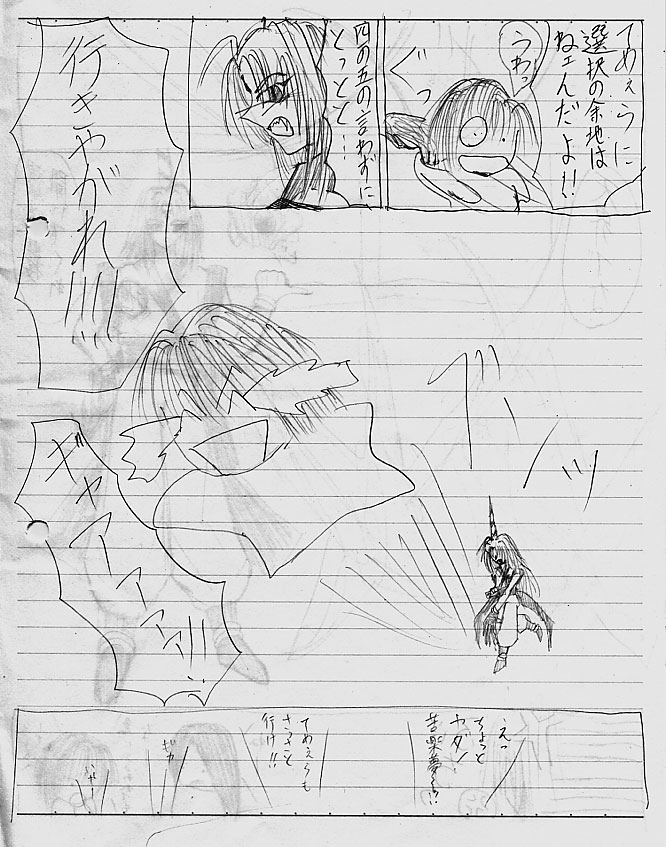 てめぇらに
選択の余地は
ねエんだよ!!
うわっ
ぐっ
四の五の言わずに
とっとと…
行きやがれ!!!!
ブーンッ
ギャアアアアア!!
えっ
ちょっと
ヤダ!
てめえらも
さっさと
行け!!
ギャ
いやー